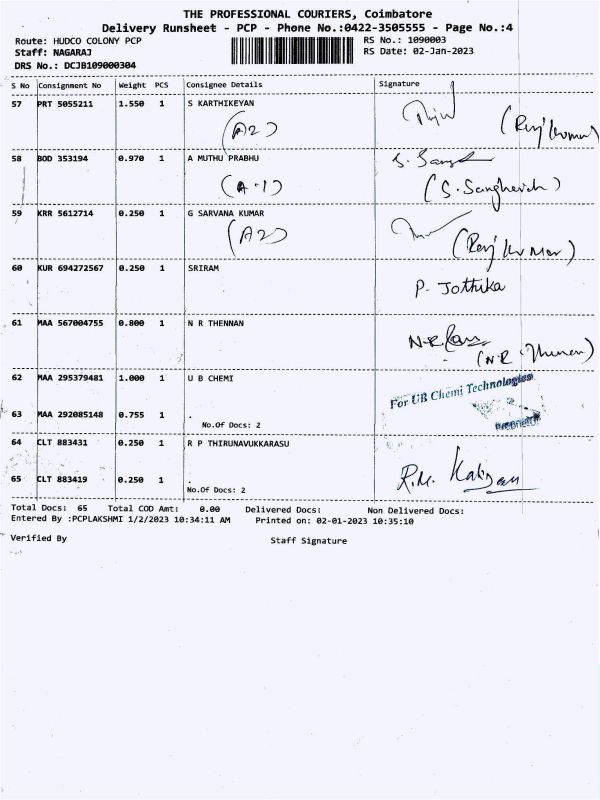 THE PROFESSIONAL COURIERS, Coimbatore
Delivery Runsheet - PCP - Phone No.:0422-3505555 - Page No.:4
Route: HUDCO COLONY PCP
RS No.: 1090003
Staff: NAGARAJ
RS Date: 02-Jan-2023
DRS No.: DCJB109000304
S No Consignment No Weight PCS Consignee Details Signature
57 PRT 5055211 1.550 1 S KARTHIKEYAN
(A2) (Rajkumar)
58 BOD 353194 0.970 1 A MUTHU PRABHU
(A-1) (S.
59 KRR 5612714 0.250 1 G SARVANA KUMAR
(A2) (Rajkumar)
60 KUR 694272567 0.250 1 SRIRAM
P. Jothika
61 MAA 567004755 0.800 1 N R THENNAN
(N.R.
62 MAA 295379481 1.000 1 U B CHEMI
For UB Chemi Technologies
63 MAA 292085148 0.755 1 .
No.Of Docs: 2
64 CLT 883431 0.250 1 R P THIRUNAVUKKARASU
65 CLT 883419 0.250 1 .
R.M.
No.Of Docs: 2
Total Docs: 65 Total COD Amt: 0.00 Delivered Docs: Non Delivered Docs:
Entered By :PCPLAKSHMI 1/2/2023 10:34:11 AM Printed on: 02-01-2023 10:35:10
Verified By Staff Signature